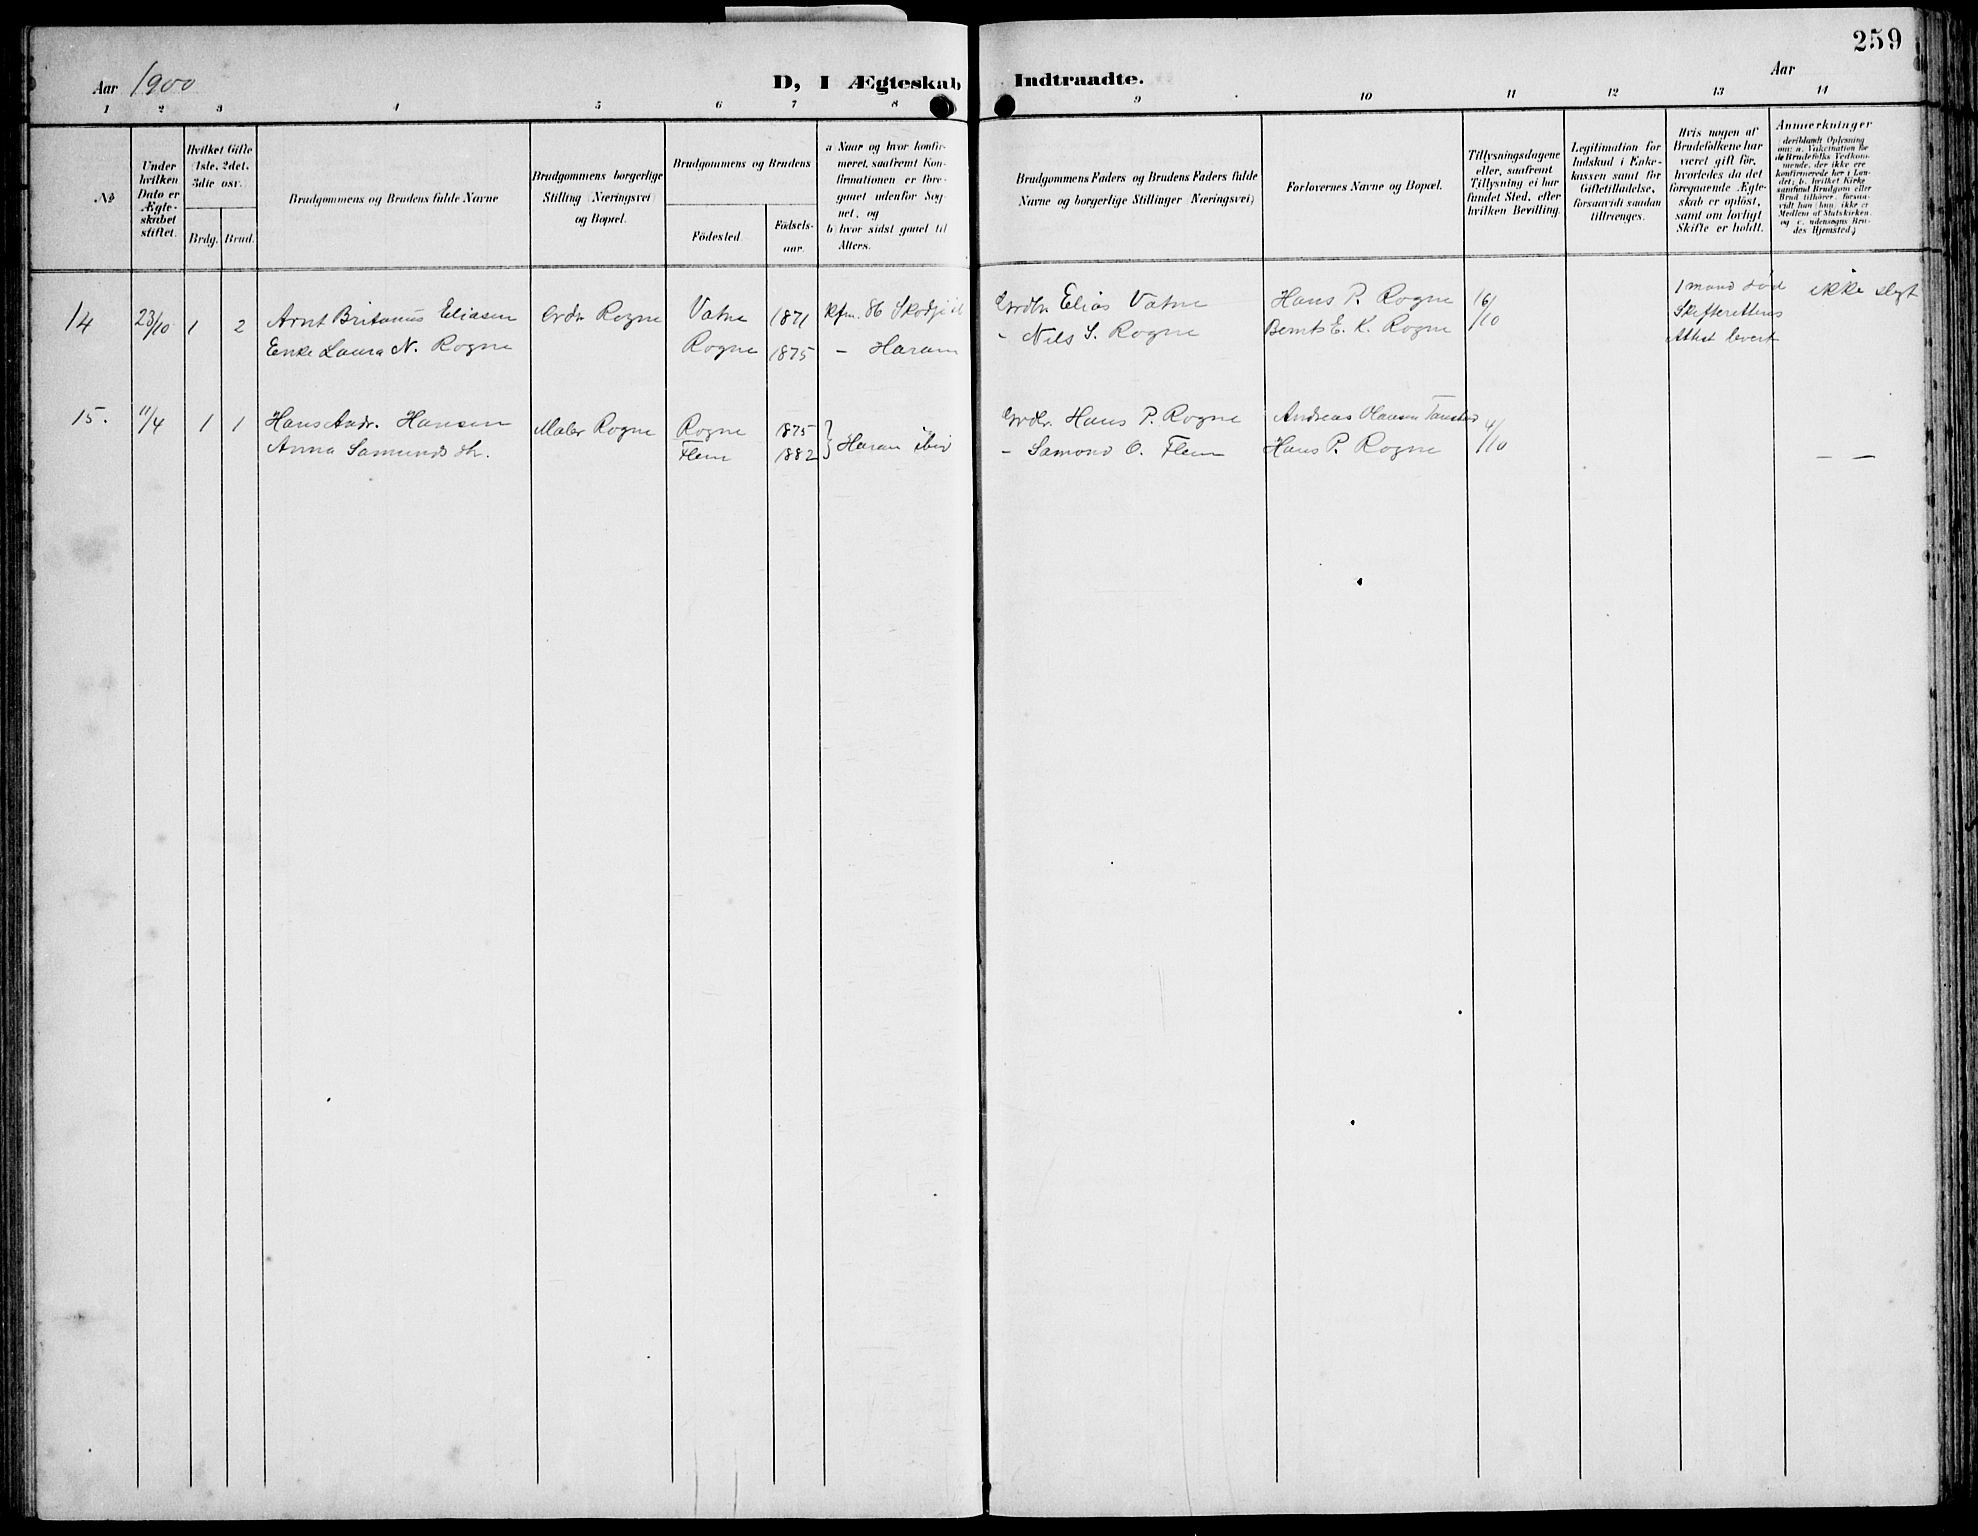 259
Aar 1900
D, I Ægteskab Indtraadte.
Aar
1 2 3 4 5 6 7 8 9 10 11 12 13 14
No
Under
hvilken
Dato er
Ægte-
skabet
stiftet.
Hvilket Gifte
(1ste, 2det.
3die osv.
Brdg. Brud.
Brudgommens og Brudens fulde Navne
Brudgommens borgerlige
Stilling (Næringsvei)
og Bopæl.
Brudgommens og Brudens
Födested.
Födsels-
aar.
a Naar og hvor konfir-
meret, saafremt Kon-
firmationen er fore-
gaaet udenfor Sog-
net, og
b) hvor sidst gaaet til
Alters.
Brudgommens Faders og Brudens Faders fulde
Navne og borgerlige Stillinger (Næringsvei)
Forlovernes Navne og Bopæl.
Tillysningsdagene
eller, saafremt
Tillysning ei har
fundet Sted, efter
hvilken Bevilling.
Legitimation for
Indskud i Enke-
kassen samt for
Giftetilladelse,
forsaavidt saadan
tiltrænges.
Hvis nogen af
Brudefolkene har
været gift för,
hvorledes da det
foregaaende Ægte-
skab er oplöst,
samt om lovligt
Skifte er holdt.
Anmærkninger
(deriblandt Oplysning
om: a. Vakcination for
de Brudefolks Vedkom-
mende, der ikke ere
konfirmerede her i Lan-
det; b. hvilket Kirke
samfund Brudgom eller
Brud tilhører, forsaa-
vidt han (hun) ikke er
Medlem af Statskirken,
og c. udensogns Bru-
des Hjemsted.)
14 23/10 1 2 Arnt Britanus Eliasen Grdr Rogne Vatne 1871 kfm. 86 Skodje Grdbr Elias Vatne Hans P. Rogne 16/10 1 mand död ikke slegt
Enke Laura N. Rogne Rogne 1875 – Haram – Nils S. Rogne Bernts E. K. Rogne Skifterettens
Attest levert
15. 11/4 1 1 Hans Andr. Hansen Maler Rogne Rogne 1875 } Haram ibid Grdbr. Hans P. Rogne Andreas Olausen 4/10
Anna Samunds dtr. Flem 1882 – Samond O. Flem Hans P. Rogne — —